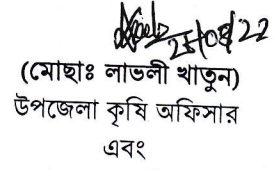 25/08/22
(মোছাঃ লাভলী খাতুন)
উপজেলা কৃষি অফিসার
এবং